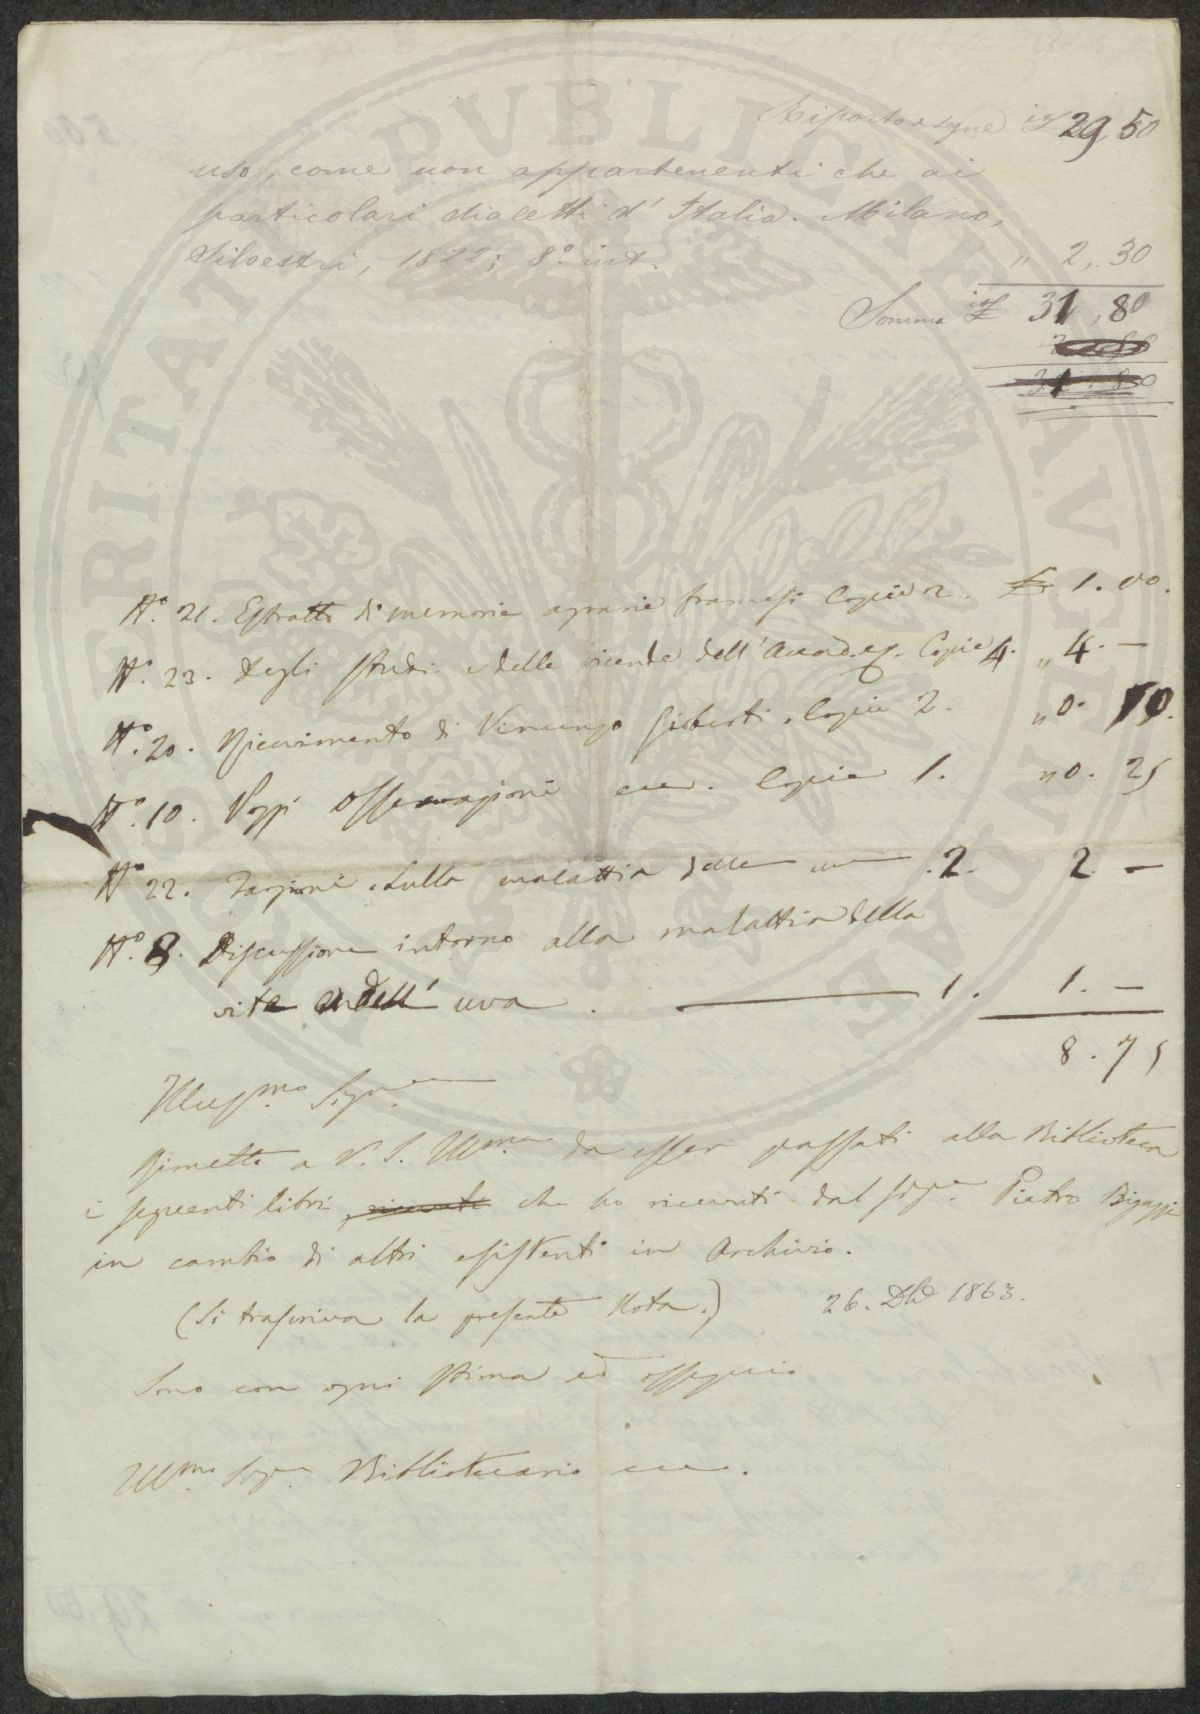 Riporto e segue it£ 29,50
uso, come non appartenenti che ai
particolari dialetti d'Italia. Milano,
Silvestri, 1822; 8.° int. " 2,.30
Somma it£ 31,80
31.80
N.° 21. Estratto di memorie agrarie francesi Copie 2. £ 1.00.
N.° 23. Degli studi e delle vicende dell'Accad. ec. Copie 4. " 4.—
N.° 20. Ricevimento di Vincenzo Gioberti. Copie 2. " 0. 50.
N.° 10. Vaggi Osservazioni ecc. Copie 1. " 0. 25
N.° 22. Targioni sulla malattia delle uve .2. 2.—
N.° 8. Discussione intorno alla malattia della
vite e dell'uva. — 1. 1.—
8.75
Illuss.mo Sign.re
Rimetto a V. S. Ill.ma da esser passati alla Biblioteca
i seguenti libri, ricevuti che ho ricevuti dal Sig.re Pietro Bigazzi
in cambio di altri esistenti in Archivio.
(Si trascriva la presente Nota.) 26. Dbre 1863.
Sono con ogni stima ed ossequio
Ill.mo Sig.re Bibliotecario ecc.
PUBLICAE